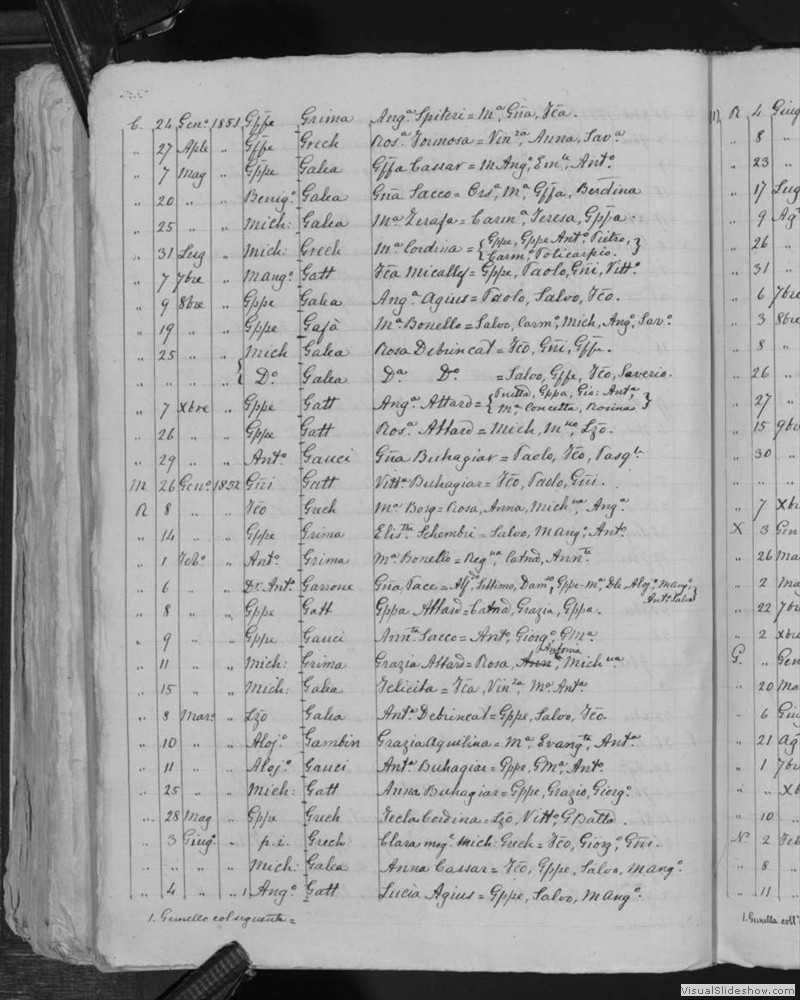 C. 24 Genº 1851 Gffe Grima Angª Spiteri = Mª, Gña, Fča.
„ 27 Aple „ Gffe Grech Rosª Formosa = Vinzª, Anna, Savª
„ 7 Mag „ Gppe Galea Gffa Cassar = M Angº, Emle, Antº
„ 20 „ „ Benigº Galea Gña Sacco = Orsª, Mª, Gffa, Berdina
„ 25 „ „ Mich: Galea Mª Zerafa = Carmª, Teresa, Gppa.
„ 31 Lug „ Mich: Grech Mª Cordina = {Gppe, Gppe Antº, Pietro, Carmº, Policarpio.}
„ 7 7bre „ Mangº Gatt Fča Micallef = Gppe, Paolo, Gñi, Vittº
„ 9 8bre „ Gppe Galea Angª Agius = Paolo, Salvo, Fčo.
„ 19 „ „ Gppe Gafà Mª Bonello = Salvo, Carmº, Mich, Angº, Savº.
„ 25 „ „ Mich Galea Rosa Debrincat = Fčo, Gñi, Gffe.
„ „ „ „ { Dº Galea Dª Dº = Salvo, Gffe, Fčo, Saverio.
„ 7 Xbre „ Gppe Gatt Angª Attard = { Gppa, Gio: Antª, Mª Concetta, Rosina }
„ 26 „ „ Gppe Gatt Rosª Attard = Mich, Mnº, Lzo.
„ 29 „ „ Antº Gauci Gña Buhagiar = Paolo, Fčo, Pasqle
M 26 Genº 1852 Gñi Gatt Vittª Buhagiar = Fčo, Paolo, Gñi.
R 8 „ „ Fčo Grech Mª Borg = Rosa, Anna, Michna, Angª
„ 14 „ „ Gppe Grima Elistta Schembri = Salvo, M Angº, Antº.
„ 1 Febº „ Antº Grima Mª Bonello = Regna, Catña, Annta
„ 6 „ „ Dr Antº Garrone Gña Pace = Alfdo, Settimo, Damso, Gppe Mª, Dte Alojº Mangº, Antº Salvº}
„ 8 „ „ Gppe Gatt Gppa Attard = Catña, Grazia, Gppa.
„ 9 „ „ Gppe Gauci Annta Sacco = Antº, Giorgº, GMª
„ 11 „ „ Mich: Grima Grazia Attard = Rosa, Ann, Antonia, Michna
„ 15 „ „ Mich: Galea Felicita = Fča, Vinza, Mª Antª
„ 8 Marº „ Lzo Galea Antª Debrincat = Gppe, Salvo, Fčo.
„ 10 „ „ Alojº Gambin Grazia Aquilina = Mª, Evangta, Antª
„ 11 „ „ Alojº Gauci Antª Buhagiar = Gppe, GMª, Antº
„ 25 „ „ Mich: Gatt Anna Buhagiar = Gppe, Grazio, Giorgº
„ 28 Mag „ Gppe Grech Tecla Cordina = Lzo, Vittº, GBatta.
„ 3 Giugº „ p.i. Grech Clara mogº Mich: Grech = Fčo, Giorgº, Gñi.
„ „ „ „ Mich: Galea Anna Cassar = Fčo, Gppe, Salvo, Mangº.
„ 4 „ „ 1 Angº Gatt Lucia Agius = Gppe, Salvo, M Angº.
1. Gemello col seguente =
1) R 4 Giug
„ 8
„ 23 „
„ 17 Lug
„ 9 Agº
„ 26 „
„ 31 „
„ 6 7bre
„ 3 8bre
„ 8 „
„ 26 „
„ 27 „
„ 15 9bre
„ 30 „
„ „ „
„ 7 Xbr
X 3 Gen
„ 26 Ma
„ 2 Ma
„ 22 7br
„ 2 xbre
G. „ Gen
„ 20 Ma
„ 6 Giu
„ 21 Ag
„ 1 7br
„ „ Xb
„ 10 „
N. 2 Feb
„ 8 „
„ 11 „
1. Gemella coll'
VisualSlideshow.com